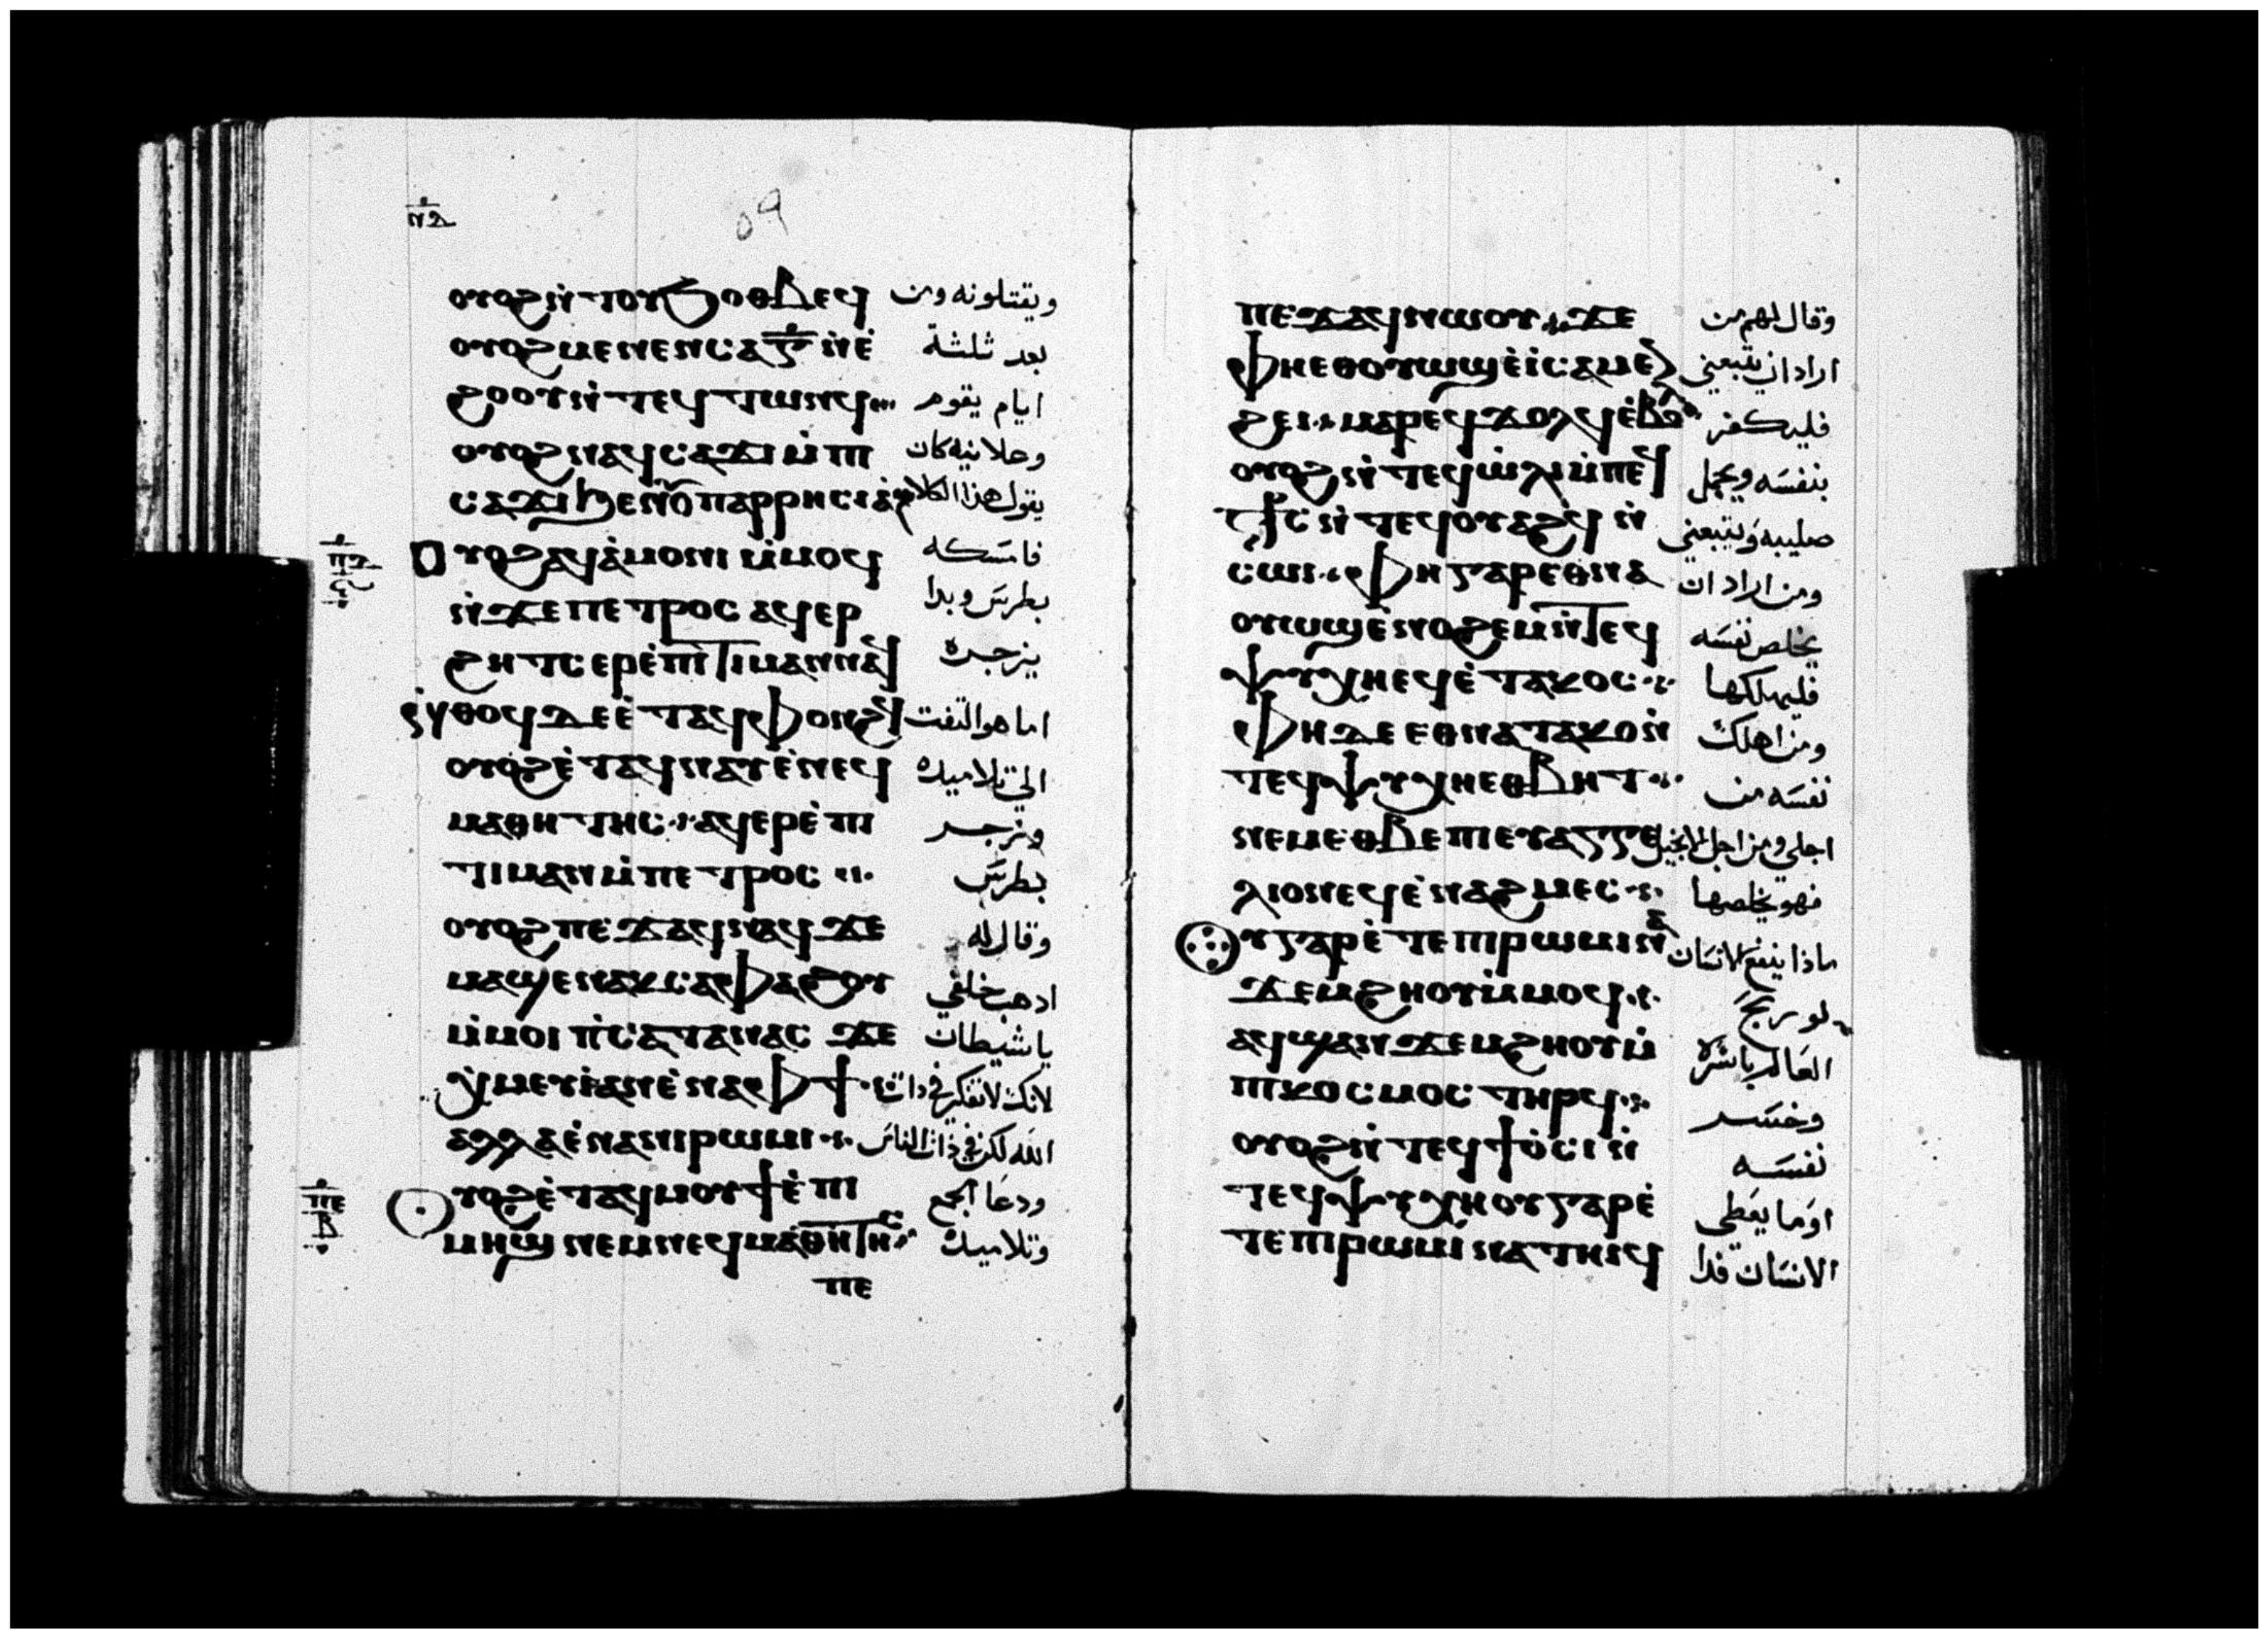 ⲛ̅ⲍ̅
٥٩
ⲟⲩⲟϩ ⲛ̀ⲧⲟⲩϧⲟⲑⲃⲉϥ ويقتلونه ومن
ⲟⲩⲟϩ ⲙⲉⲛⲉⲛⲥⲁ ⲅ̅ ⲛ̀ⲉ̀ بعد ثلثة
ϩⲟⲟⲩ ⲛ̀ⲧⲉϥⲧⲱⲛϥ ايام يقوم
ⲟⲩⲟϩ ⲛⲁϥⲥⲁϫⲓ ⲙ̀ⲡⲓ وعلانيه كان
ⲥⲁϫⲓ ϧⲉⲛ ⲟⲩⲡⲁⲣⲣⲏⲥⲓⲁ̀ يقول هذا الكلام
ⲟⲩⲟϩ ⲁϥⲁ̀ⲙⲟⲛⲓ ⲙ̀ⲙⲟϥ فامسكه
ⲛ̀ϫⲉ ⲡⲉⲧⲣⲟⲥ ⲁϥⲉⲣ بطرس وبدا
ϩⲏⲧⲥ ⲉⲣⲉ̀ⲡⲓⲧⲓⲙⲁⲛ ⲛⲁϥ يزجره
ⲛ̀ⲑⲟϥ ⲇⲉ ⲉ̀ⲧⲁϥⲫⲟⲛϩϥ اما هو التفت
ⲟⲩⲟϩ ⲉ̀ⲧⲁϥⲛⲁⲩ ⲉ̀ⲛⲉϥ الي تلاميده
ⲙⲁⲑⲏⲧⲏⲥ ⲁϥⲉⲣⲉ̀ⲡⲓ وزجر
ⲧⲓⲙⲁⲛ ⲙ̀ⲡⲉⲧⲣⲟⲥ بطرس
ⲟⲩⲟϩ ⲡⲉϫⲁϥ ⲛⲁϥ ϫⲉ وقال له
ⲙⲁϣⲉⲛⲁⲕ ⲥⲁⲫⲁϩⲟⲩ ادهب خلفي
ⲙ̀ⲙⲟⲓ ⲡ̀ⲥⲁⲧⲁⲛⲁⲥ ϫⲉ يا شيطان
ⲭ̀ⲙⲉⲩⲓ ⲁⲛ ⲉ̀ⲛⲁⲫϯ لانك لا تفكر في دات
ⲁⲗⲗⲁ ⲉ̀ⲛⲁⲛⲓⲣⲱⲙⲓ الله لكن في ذات الناس
ⲟⲩⲟϩ ⲉ̀ⲧⲁϥⲙⲟⲩϯ ⲉ̀ⲡⲓ ودعا الجمع
ⲙⲏϣ ⲛⲉⲙ ⲛⲉϥⲙⲁⲑⲏⲧⲏⲥ وتلاميده
ⲡⲉ
ⲡⲉϫⲁϥ ⲛⲱⲟⲩ ϫⲉ وقال لهم من
ⲫⲏ ⲉⲑⲟⲩⲱϣ ⲉ̀ⲓ̀ ⲥⲁⲙⲉⲛ اراد ان يتبعني
ϩⲏⲓ ⲙⲁⲣⲉϥϫⲟⲗϥ ⲉ̀ⲃⲟⲗ فليكفر
ⲟⲩⲟϩ ⲛ̀ⲧⲉϥⲱ̀ⲗⲓ ⲙ̀ⲡⲉϥ بنفسه ويحمل
ⲥ̀ⲧⲁⲩⲣⲟⲥ ⲛ̀ⲧⲉϥⲟⲩⲁϩϥ ⲛ̀ صليبه ويتبعني
ⲥⲱⲓ ⲫⲏ ⲅⲁⲣ ⲉⲑⲛⲁ ومن اراد ان
ⲟⲩⲱϣ ⲉ̀ⲛⲟϩⲉⲙ ⲛ̀ⲧⲉϥ يخلص نفسه
ⲯⲩⲭⲏ ⲉϥⲉ̀ⲧⲁⲕⲟⲥ فليهلكها
ⲫⲏ ⲇⲉ ⲉⲑⲛⲁⲧⲁⲕⲟ ⲛ̀ ومن اهلك
ⲧⲉϥⲯⲩⲭⲏ ⲉⲑⲃⲏⲧ نفسه من
ⲛⲉⲙ ⲉⲑⲃⲉ ⲡⲓⲉⲩⲁⲅⲅⲉ اجلي ومن اجل الانجيل
ⲗⲓⲟⲛ ⲉϥⲉ̀ⲛⲁϩⲙⲉⲥ فهو يخلصها
ⲟⲩ ⲅⲁⲣ ⲉ̀ⲧⲉ ⲡⲓⲣⲱⲙⲓ ⲛⲁ ماذا ينفع الانسان
ϫⲉⲙϩⲏⲟⲩ ⲙ̀ⲙⲟϥ لو ربح
ⲁϥϣⲁⲛϫⲉⲙϩⲏⲟⲩ ⲙ̀ العالم باسره
ⲡⲓⲕⲟⲥⲙⲟⲥ ⲧⲏⲣϥ وخسر
ⲟⲩⲟϩ ⲛ̀ⲧⲉϥϯⲟ̀ⲥⲓ ⲛ̀ نفسه
ⲧⲉϥⲯⲩⲭⲏ ⲟⲩ ⲅⲁⲣ ⲉ̀ اوما يعطي
ⲧⲉ ⲡⲓⲣⲱⲙⲓ ⲛⲁⲧⲏⲓϥ الانسان فدا